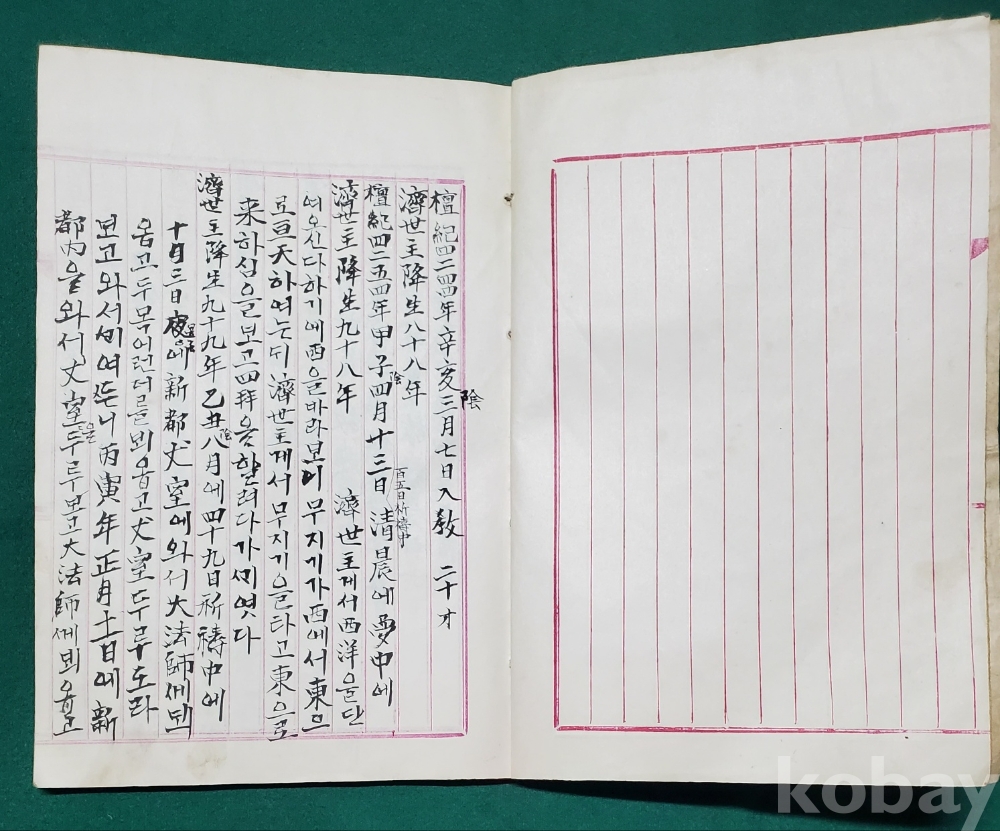 檀紀四二四四年辛亥三月七日入敎 二十才
陰
濟世主降生八十八年
檀紀四二五四年甲子四月十三日 淸晨에 夢中에
陰
百五日祈禱中
濟世主降生九十八年 濟世主게서 西洋을단
여오신다하기에 西을바라보이 무지기가 西에서 東으
로 亘天하여는듸 濟世主게서 무지기을타고 東으로
来하심을보고 四拜을할려다가 여엿다
濟世主降生九十九年 乙丑八月에 四十九日祈禱中에
陰
十月三日夜에 新都丈室에와서 大法師께
옵고 두목어런더르 뵈옵고 丈室두루도라
보고와서 여니 丙寅年正月十一日에 新
都內을와서 丈室두루보고 大法師께뵈옵고
을
kobay